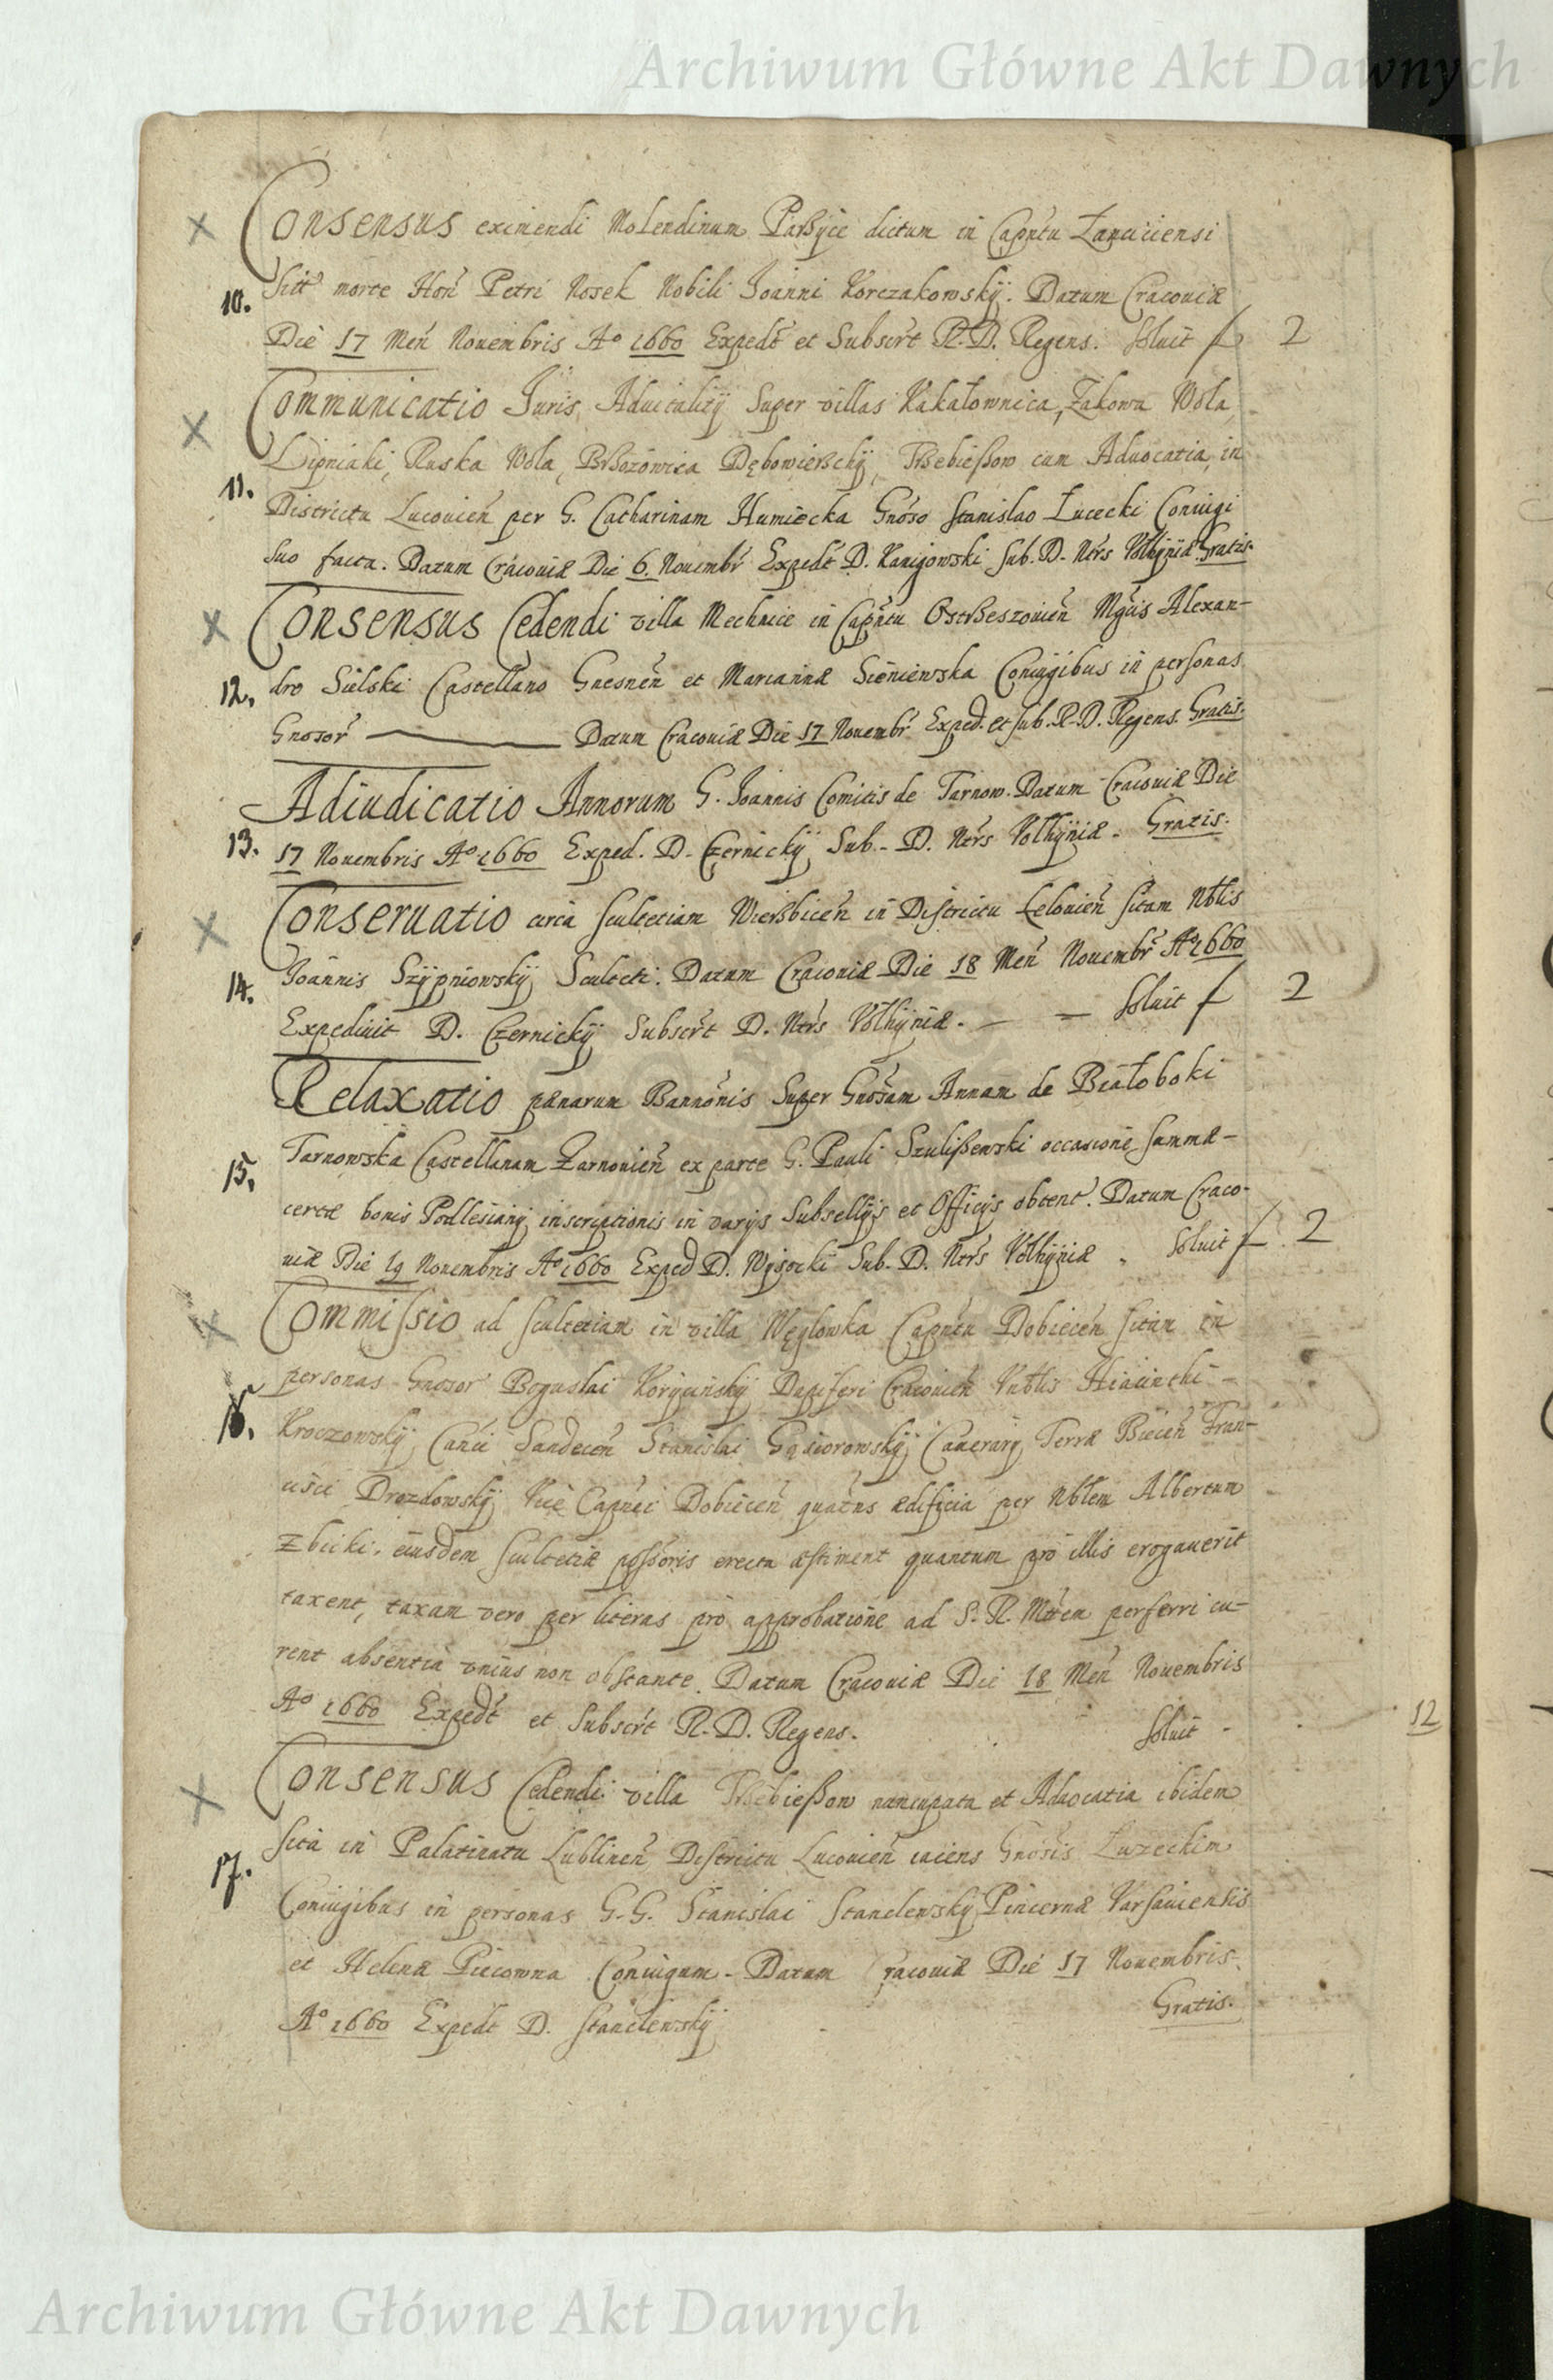 Archiwum Główne Akt Dawnych
Consensus eximendi Molendinum Parßÿce dictum in Capntu Łanciciensi
10. Sitt morte Hon Petri Nosek Nobili Joanni Korczakowskÿ. Datum Cracoviæ
Die 17 Men Nouembris Aº 1660 Expedt et Subscrt R. D. Regens. soluit f 2
Communicatio Juris Aduitalitÿ Super villas Kakałownica, Zakowa Wola
Lipniaki, Ruska Wola, Brßozowica Dębowierßchÿ, Trßebießow cum Aduocatia in
11. Districtu Lucouien per G. Catharinam Humiecka Gnoso Stanislao Łucecki Coniugi
suo facta. Datum Cracouiæ Die 6. Nouembr Expedt D. Kanigowski Sub. D. Ntrs Volhÿniæ Gratis.
Consensus Cedendi villa Mechnice in Capntu Ostrßeszouien Mgcis Alexan-
12. dro Sielski Castellano Gnesnen et Mariannæ Sieniewska Coniugibus in personas
Gnosor Datum Cracouiæ Die 17 Nouembr Exped. et sub. R. D. Regens. Gratis.
Adiudicatio Annorum G. Joannis Comitis de Tarnow. Datum Cracouiæ Die
13. 17 Nouembris Aº 1660 Exped. D. Czernickÿ Sub. D. Ntrs Volhÿniæ. Gratis.
Conseruatio circa scultetiam Wierßbicen in Districtu Lelouien sitam Nblis
14. Joannis Szÿpniowskÿ Sculteti. Datum Cracouiæ Die 18 Men Nouembr Aº 1660
Expediuit D. Czernickÿ Subscrt D. Ntrs Volhÿniæ. soluit f 2
Relaxatio pænarum Bannonis Super Gnosam Annam de Białoboki
15. Tarnowska Castellanam Zarnouien ex parte G. Pauli Szulißewski occasione summæ
certæ bonis Podlesianÿ inscriptionis in varÿs Subsellÿs et Officÿs obtent. Datum Craco-
uiæ Die 19 Nouembris Aº 1660 Exped D. Wÿsocki Sub. D. Ntrs Volhÿniæ. soluit f. 2
Commissio ad scultetiam in villa Węglowka Capntu Dobiecen sitam in
personas Gnosor Boguslai Korÿcinskÿ Dapiferi Cracouien Vnblis Hiacinthi
16. Kroczowskÿ Canci Sandecen Stanislai Gąsiorowskÿ Camerarÿ Terræ Biecen Fran-
cisci Drozdowskÿ Vice Capnei Dobiecen quatns ædificia per Nblem Albertum
Zbicki. eiusdem scultetiæ possoris erecta æstiment quantum pro illis erogauerit
taxent, taxam vero per literas pro approbatione ad S. R. Mttem perferri cu-
rent absentia vnius non obstante. Datum Cracouiæ Die 18 Men Nouembris
Aº 1660 Expedt et Subscrt R. D. Regens. soluit - 12
Consensus Cedendi villa Trßebießow nuncupata et Aduocatia ibidem
17. sita in Palatinatu Lublinen Districtu Lucouien iacens Gnosis Łuzeckim
Coniugibus in personas G. G. Stanislai Stanclewskÿ Pincernæ Varsauiensis
et Helenæ Piecowna Coniugum. Datum Cracouiæ Die 17 Nouembris.
Aº 1660 Expedt D. Stanclewskÿ Gratis.
Archiwum Główne Akt Dawnych